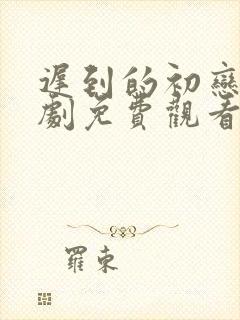 遲到的初戀
劇免費觀看
羅東